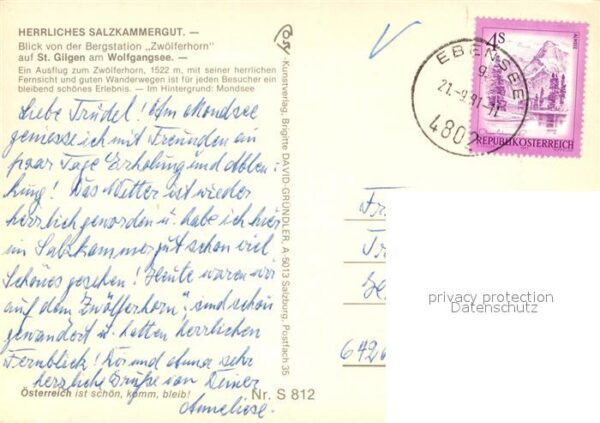 HERRLICHES SALZKAMMERGUT. —
Blick von der Bergstation „Zwölferhorn"
auf St. Gilgen am Wolfgangsee. —
Ein Ausflug zum Zwölferhorn, 1522 m, mit seiner herrlichen
Fernsicht und guten Wanderwegen ist für jeden Besucher ein
bleibend schönes Erlebnis. — Im Hintergrund: Mondsee
Liebe Trudel! Am Mondsee
geniesse ich mit Freunden ein
paar Tage Erholung und Ablen-
kung! Das Wetter ist wieder
herrlich geworden u. habe ich hier
im Salzkammergut schon viel
Schönes gesehen! Heute waren wir
auf dem „Zwölferhorn", sind schön
gewandert u. hatten herrlichen
Fernblick! Dir und sehr
herzliche Grüße von Deiner
Anneliese.
Österreich ist schön, komm, bleib!
Nr. S 812
Kunstverlag, Brigitte DAVID-GRÜNDLER, A-5013 Salzburg, Postfach 35
4 S
ALMSEE
REPUBLIK ÖSTERREICH
EBENSEE
9
21.-9.91-17
4802
Fr
Tr
642
privacy protection
Datenschutz